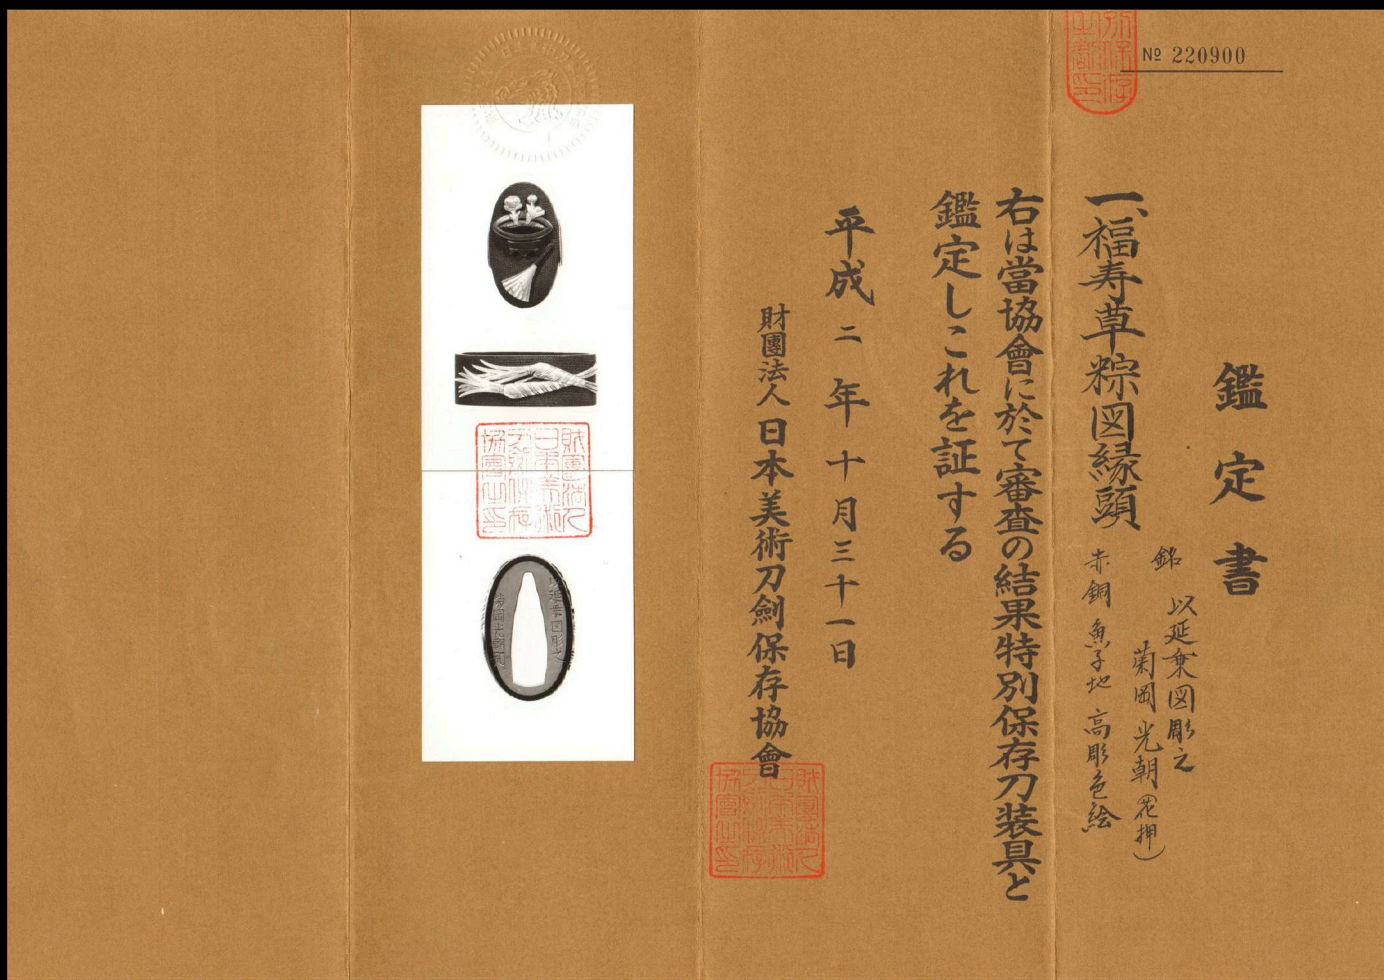 № 220900
鑑定書
一、福寿草粽図縁頭
銘 以延乗図彫之
菊岡光朝(花押)
赤銅魚子地高彫色絵
右は當協會に於て審査の結果特別保存刀装具と
鑑定しこれを証する
平成二年十月三十一日
財團法人日本美術刀劍保存協會
財團法人
日本美術
刀劍保存
協會之印
財團法人
日本美術
刀劍保存
協會之印